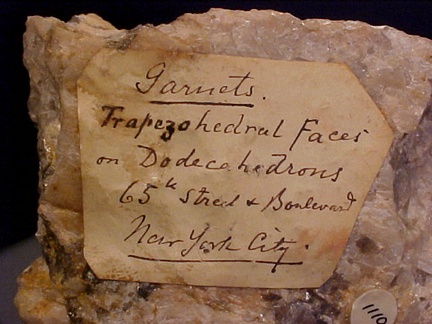 Garnets.
Trapezohedral Faces
on Dodecahedrons
65th Street & Boulevard
New York City.
1110